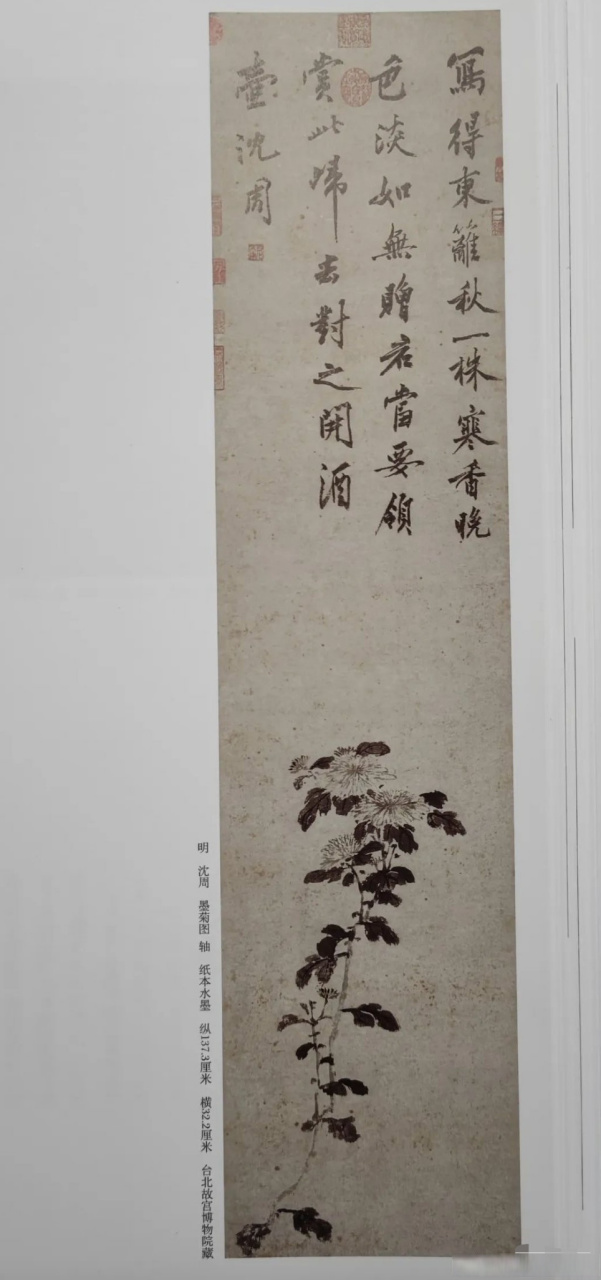 寫得東籬秋一株寒香晚
色淡如無贈君當要領
賞此歸去對之開酒
壺沈周
明　沈周　墨菊图　轴　纸本水墨　纵137.3厘米　横32.2厘米　台北故宫博物院藏